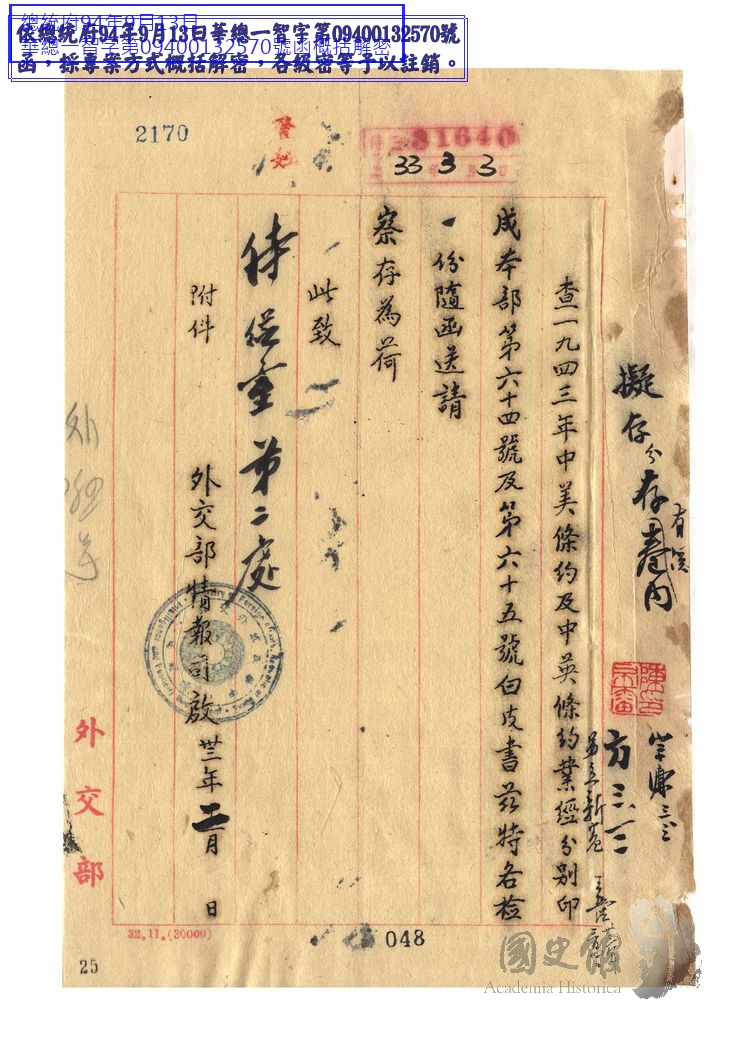 總統府94年9月13日
華總一智字第09400132570號函概括解密
依總統府94年9月13日華總一智字第09400132570號
函，採專案方式概括解密，各級密等予以註銷。
2170
31640
33 3 3
擬存
存卷內
方
另立新卷
查一九四三年中美條約及中英條約業經分別印
成本部第六十四號及第六十五號白皮書茲特各檢
一份隨函送請
察存為荷
此致
侍從室第二處
附件
外交部情報司啟 卅三年二月 日
外交部
32.11.(30000)
048
25
國史館
Academia Historica